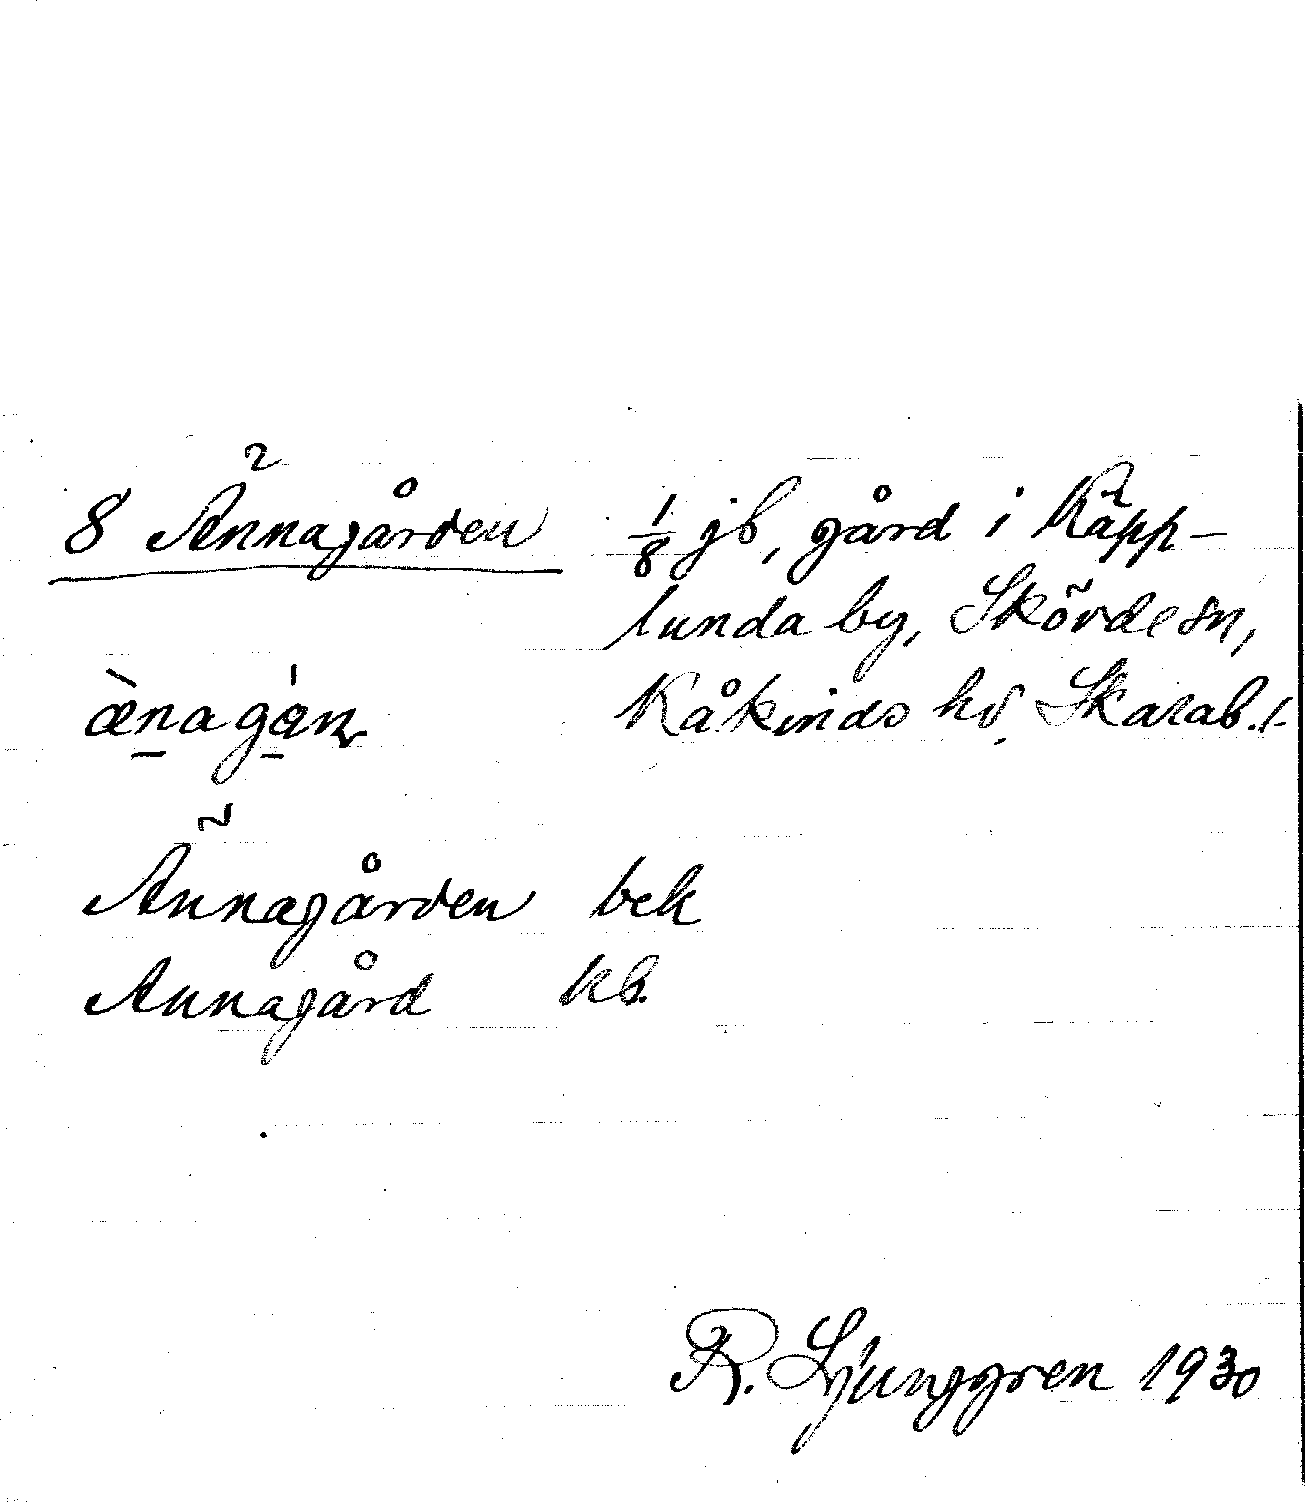 8 Ännagården 1/8 jb, gård i Käpp-
lunda by, Skövde sn,
ænagan Kåkinds hd, Skarab. l.
Ännagården bek
Annagård kb.
R. Ljunggren 1930